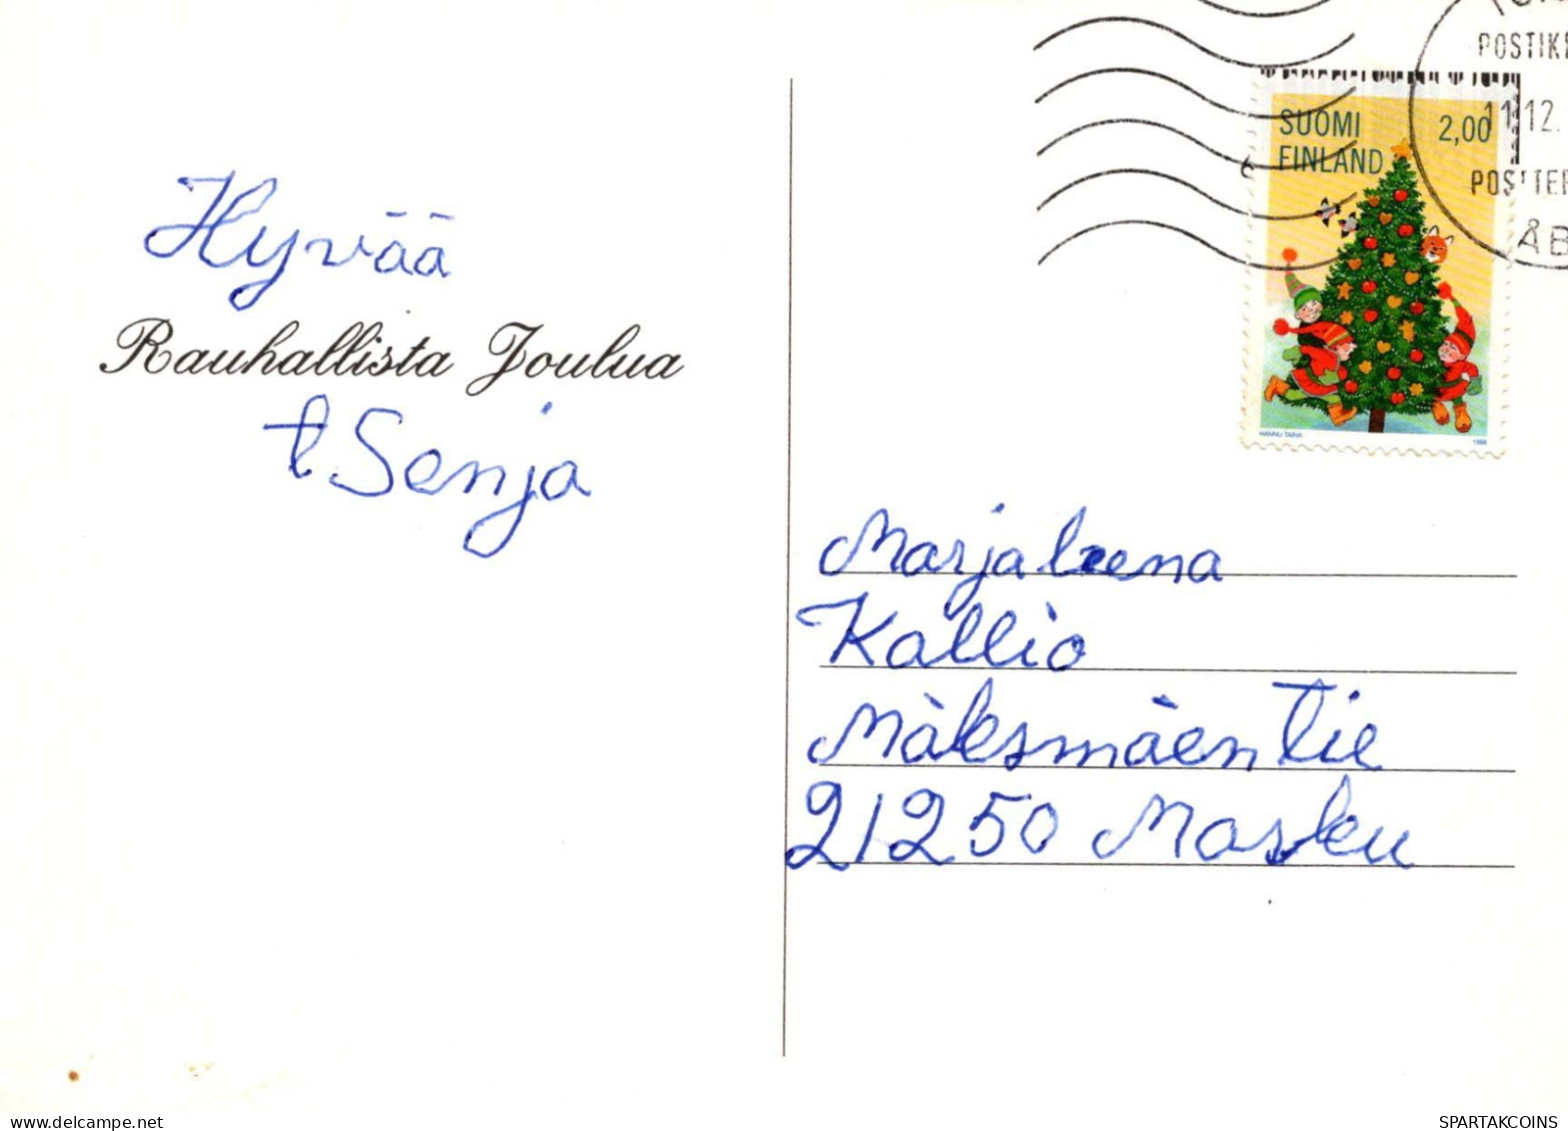 Hyvää
Rauhallista Joulua
t Senja
POSTIK
11.12.
ÅB
SUOMI 2,00
FINLAND
HANNU TAINA
Marjaleena
Kallio
Mäksmäentie
21250 Masku
www.delcampe.net
SPARTAKCOINS